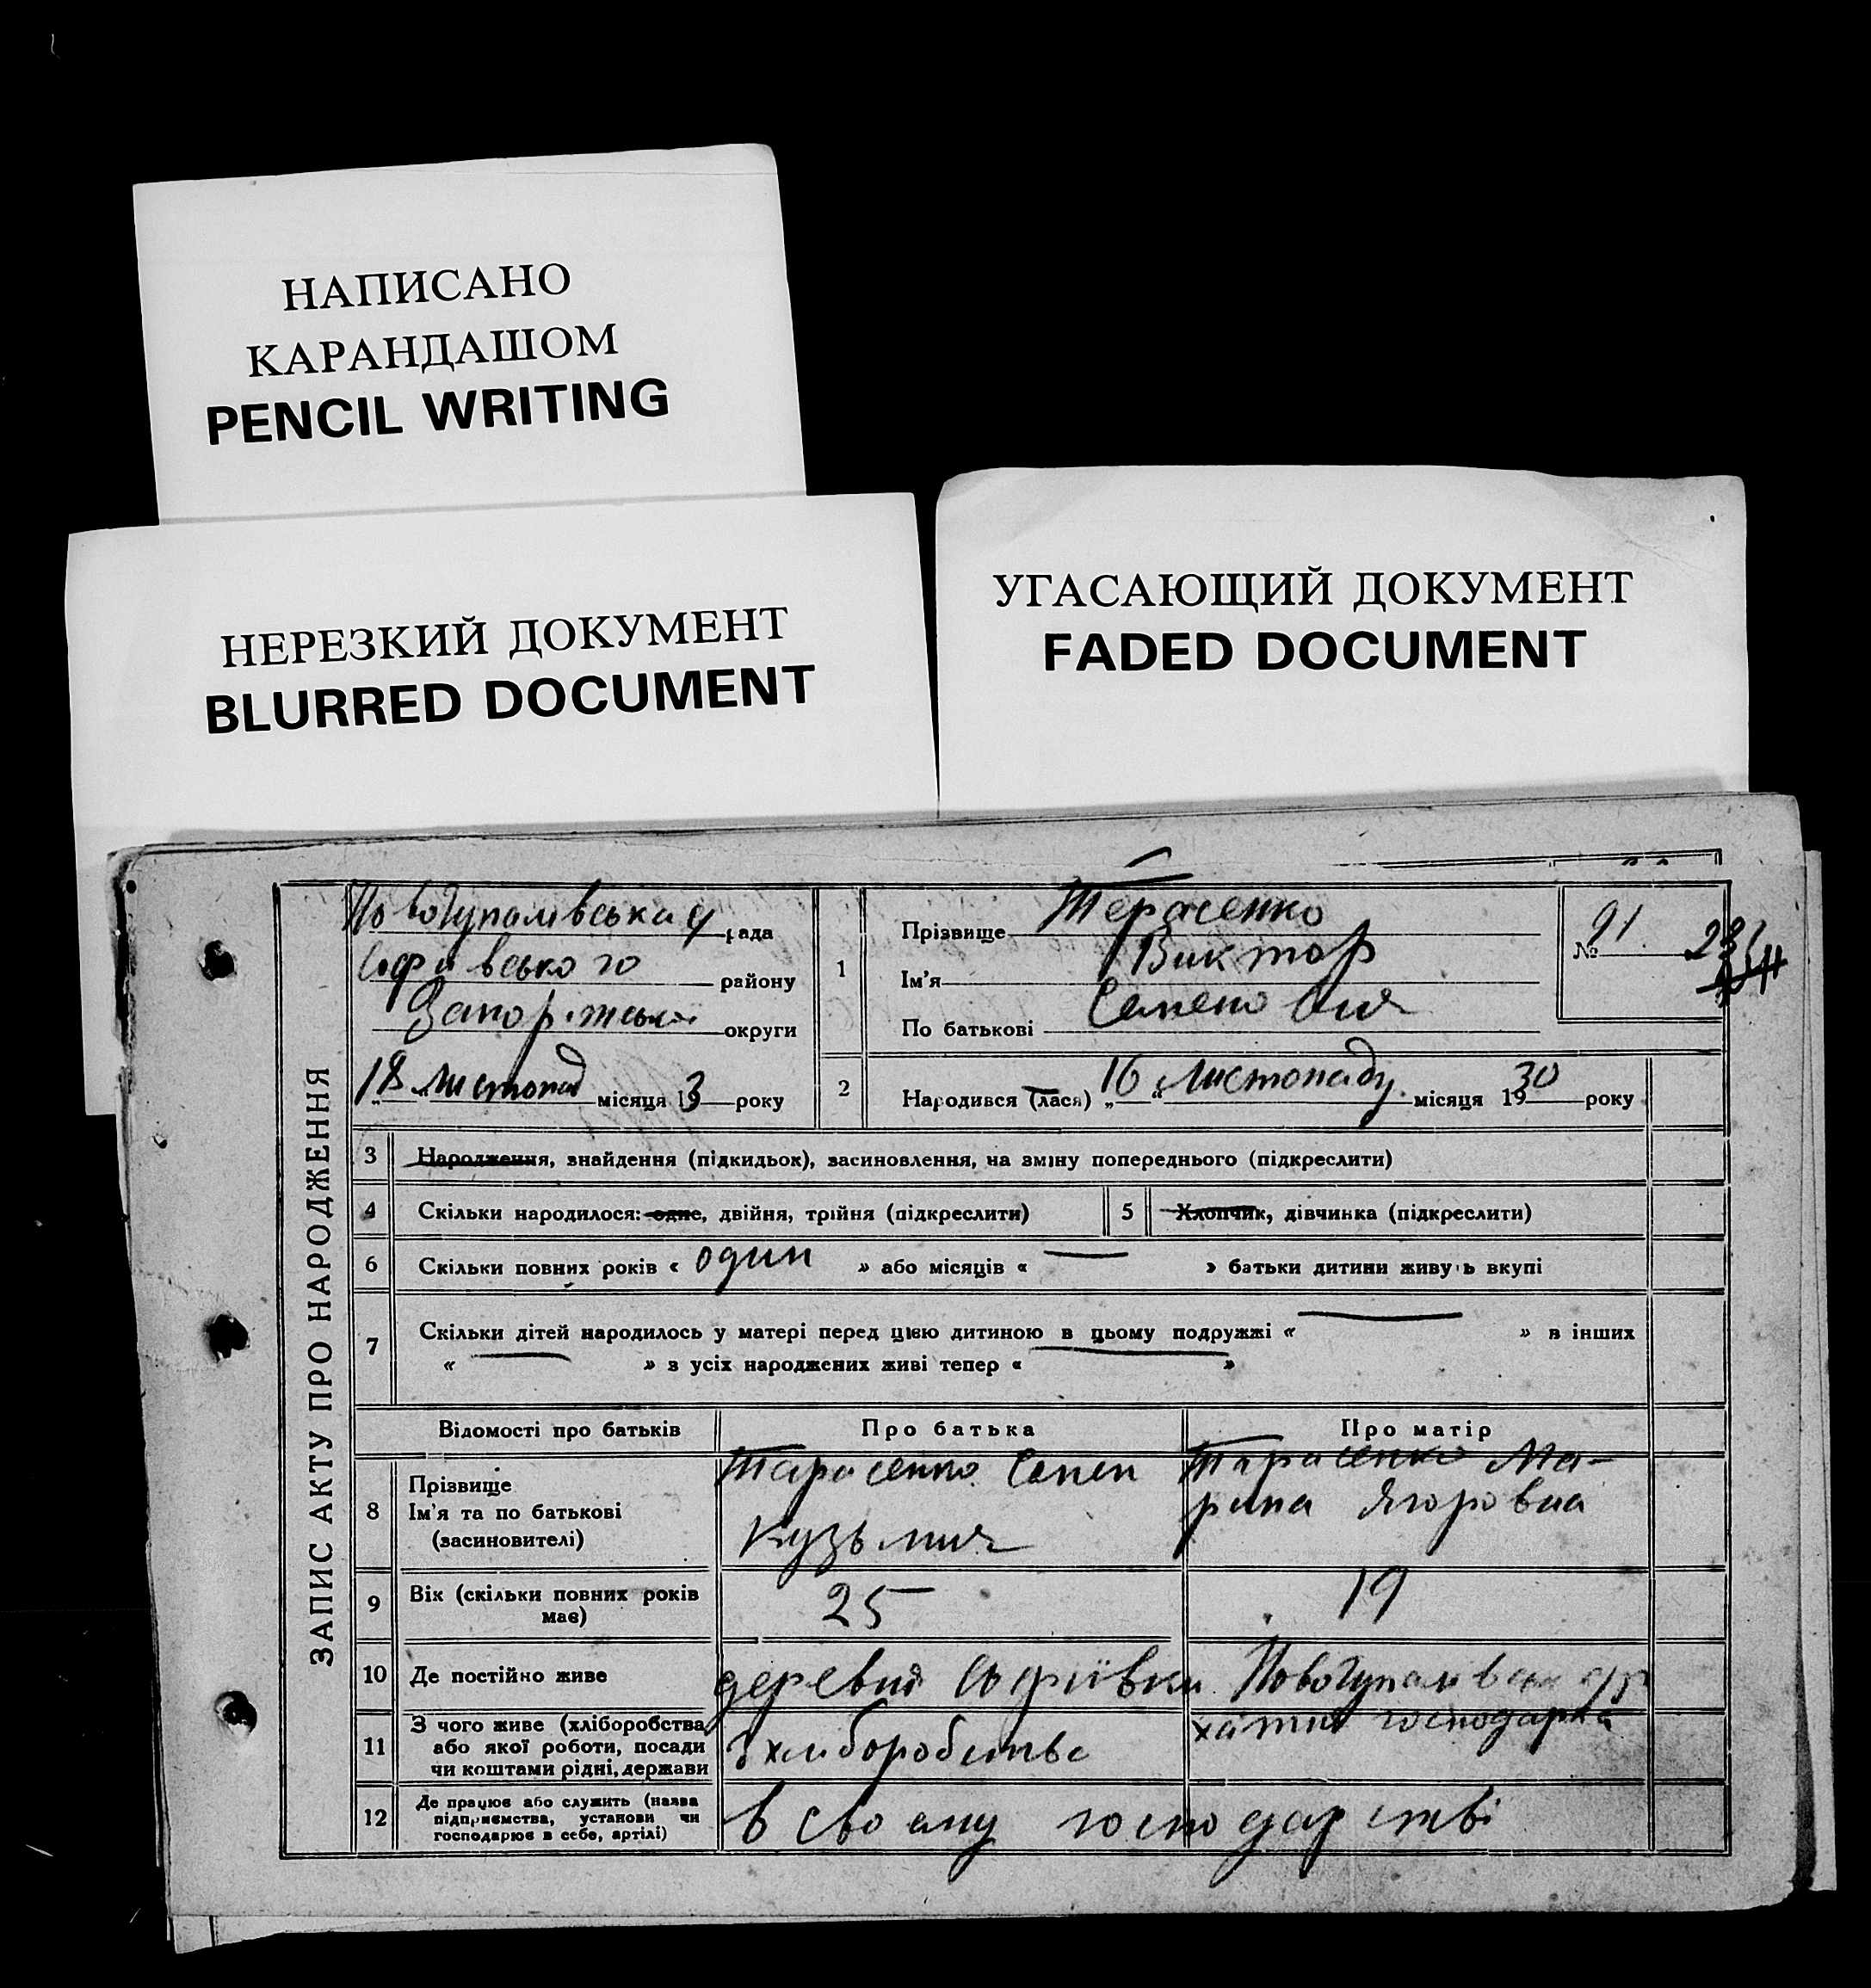 НАПИСАНО
КАРАНДАШОМ
PENCIL WRITING
НЕРЕЗКИЙ ДОКУМЕНТ
BLURRED DOCUMENT
УГАСАЮЩИЙ ДОКУМЕНТ
FADED DOCUMENT
ЗАПИС АКТУ ПРО НАРОДЖЕННЯ
рада
району
округи
18 Листопад місяця 13 року
1
Прізвище Терасенко
Ім'я Виктор
По батькові Семенович
№ 91
2
Народився (лася) „16“ Листопаду місяця 1930 року
3 Народження, знайдення (підкидьок), засиновлення, на зміну попереднього (підкреслити)
4 Скільки народилося: одне, двійня, трійня (підкреслити)
5 Хлопчик, дівчинка (підкреслити)
6 Скільки повних років « один » або місяців « — » батьки дитини живуть вкупі
7 Скільки дітей народилось у матері перед цією дитиною в цьому подружжі « — » в інших
« — » з усіх народжених живі тепер « — »
Відомості про батьків Про батька Про матір
8 Прізвище
Ім'я та по батькові
(засиновителі)
Тарасенко Семен
Кузьмич
Тарасенко Ма-
рина Ягоровна
9 Вік (скільки повних років
має)
25 19
10 Де постійно живе
деревня Софіївка
11 З чого живе (хліборобства,
або якої роботи, посади
чи коштами рідні, держави
з хлиборобства
хатня господарка
12 Де працює або служить (назва
підприємства, установи чи
господарює в себе, артілі)
в своему господарстві